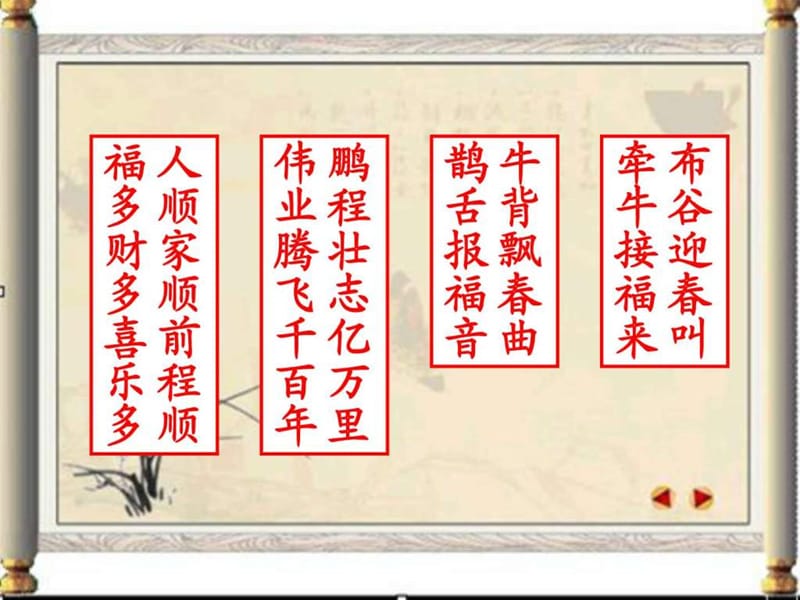 布谷迎春叫
牵牛接福来
牛背飘春曲
鹊舌报福音
鹏程壮志亿万里
伟业腾飞千百年
人顺家顺前程顺
福多财多喜乐多